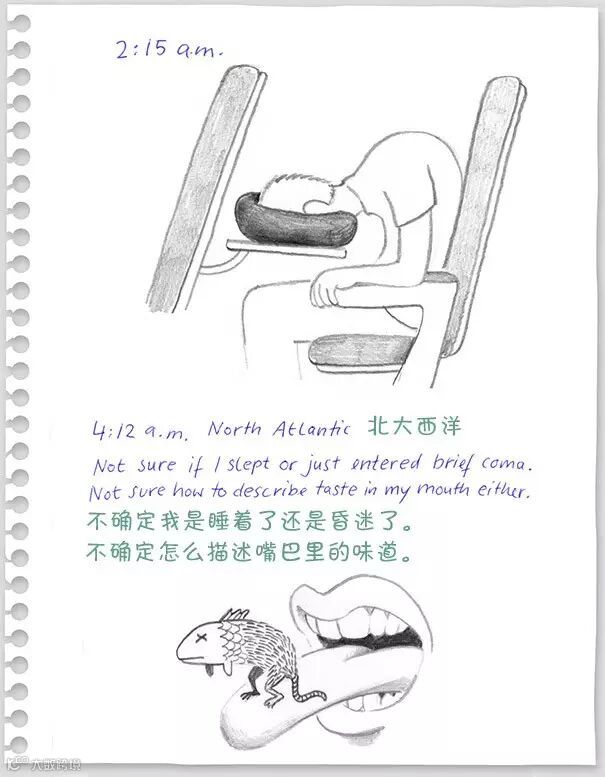 2:15 a.m.
4:12 a.m. North Atlantic 北大西洋
Not sure if I slept or just entered brief coma.
Not sure how to describe taste in my mouth either.
不确定我是睡着了还是昏迷了。
不确定怎么描述嘴巴里的味道。
大数跨境